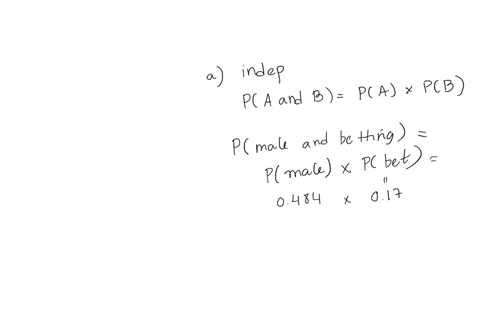 a) indep
P(A and B) = P(A) × P(B)
P(male and betting) =
P(male) × P(bet) =
"
0.484 × 0.17